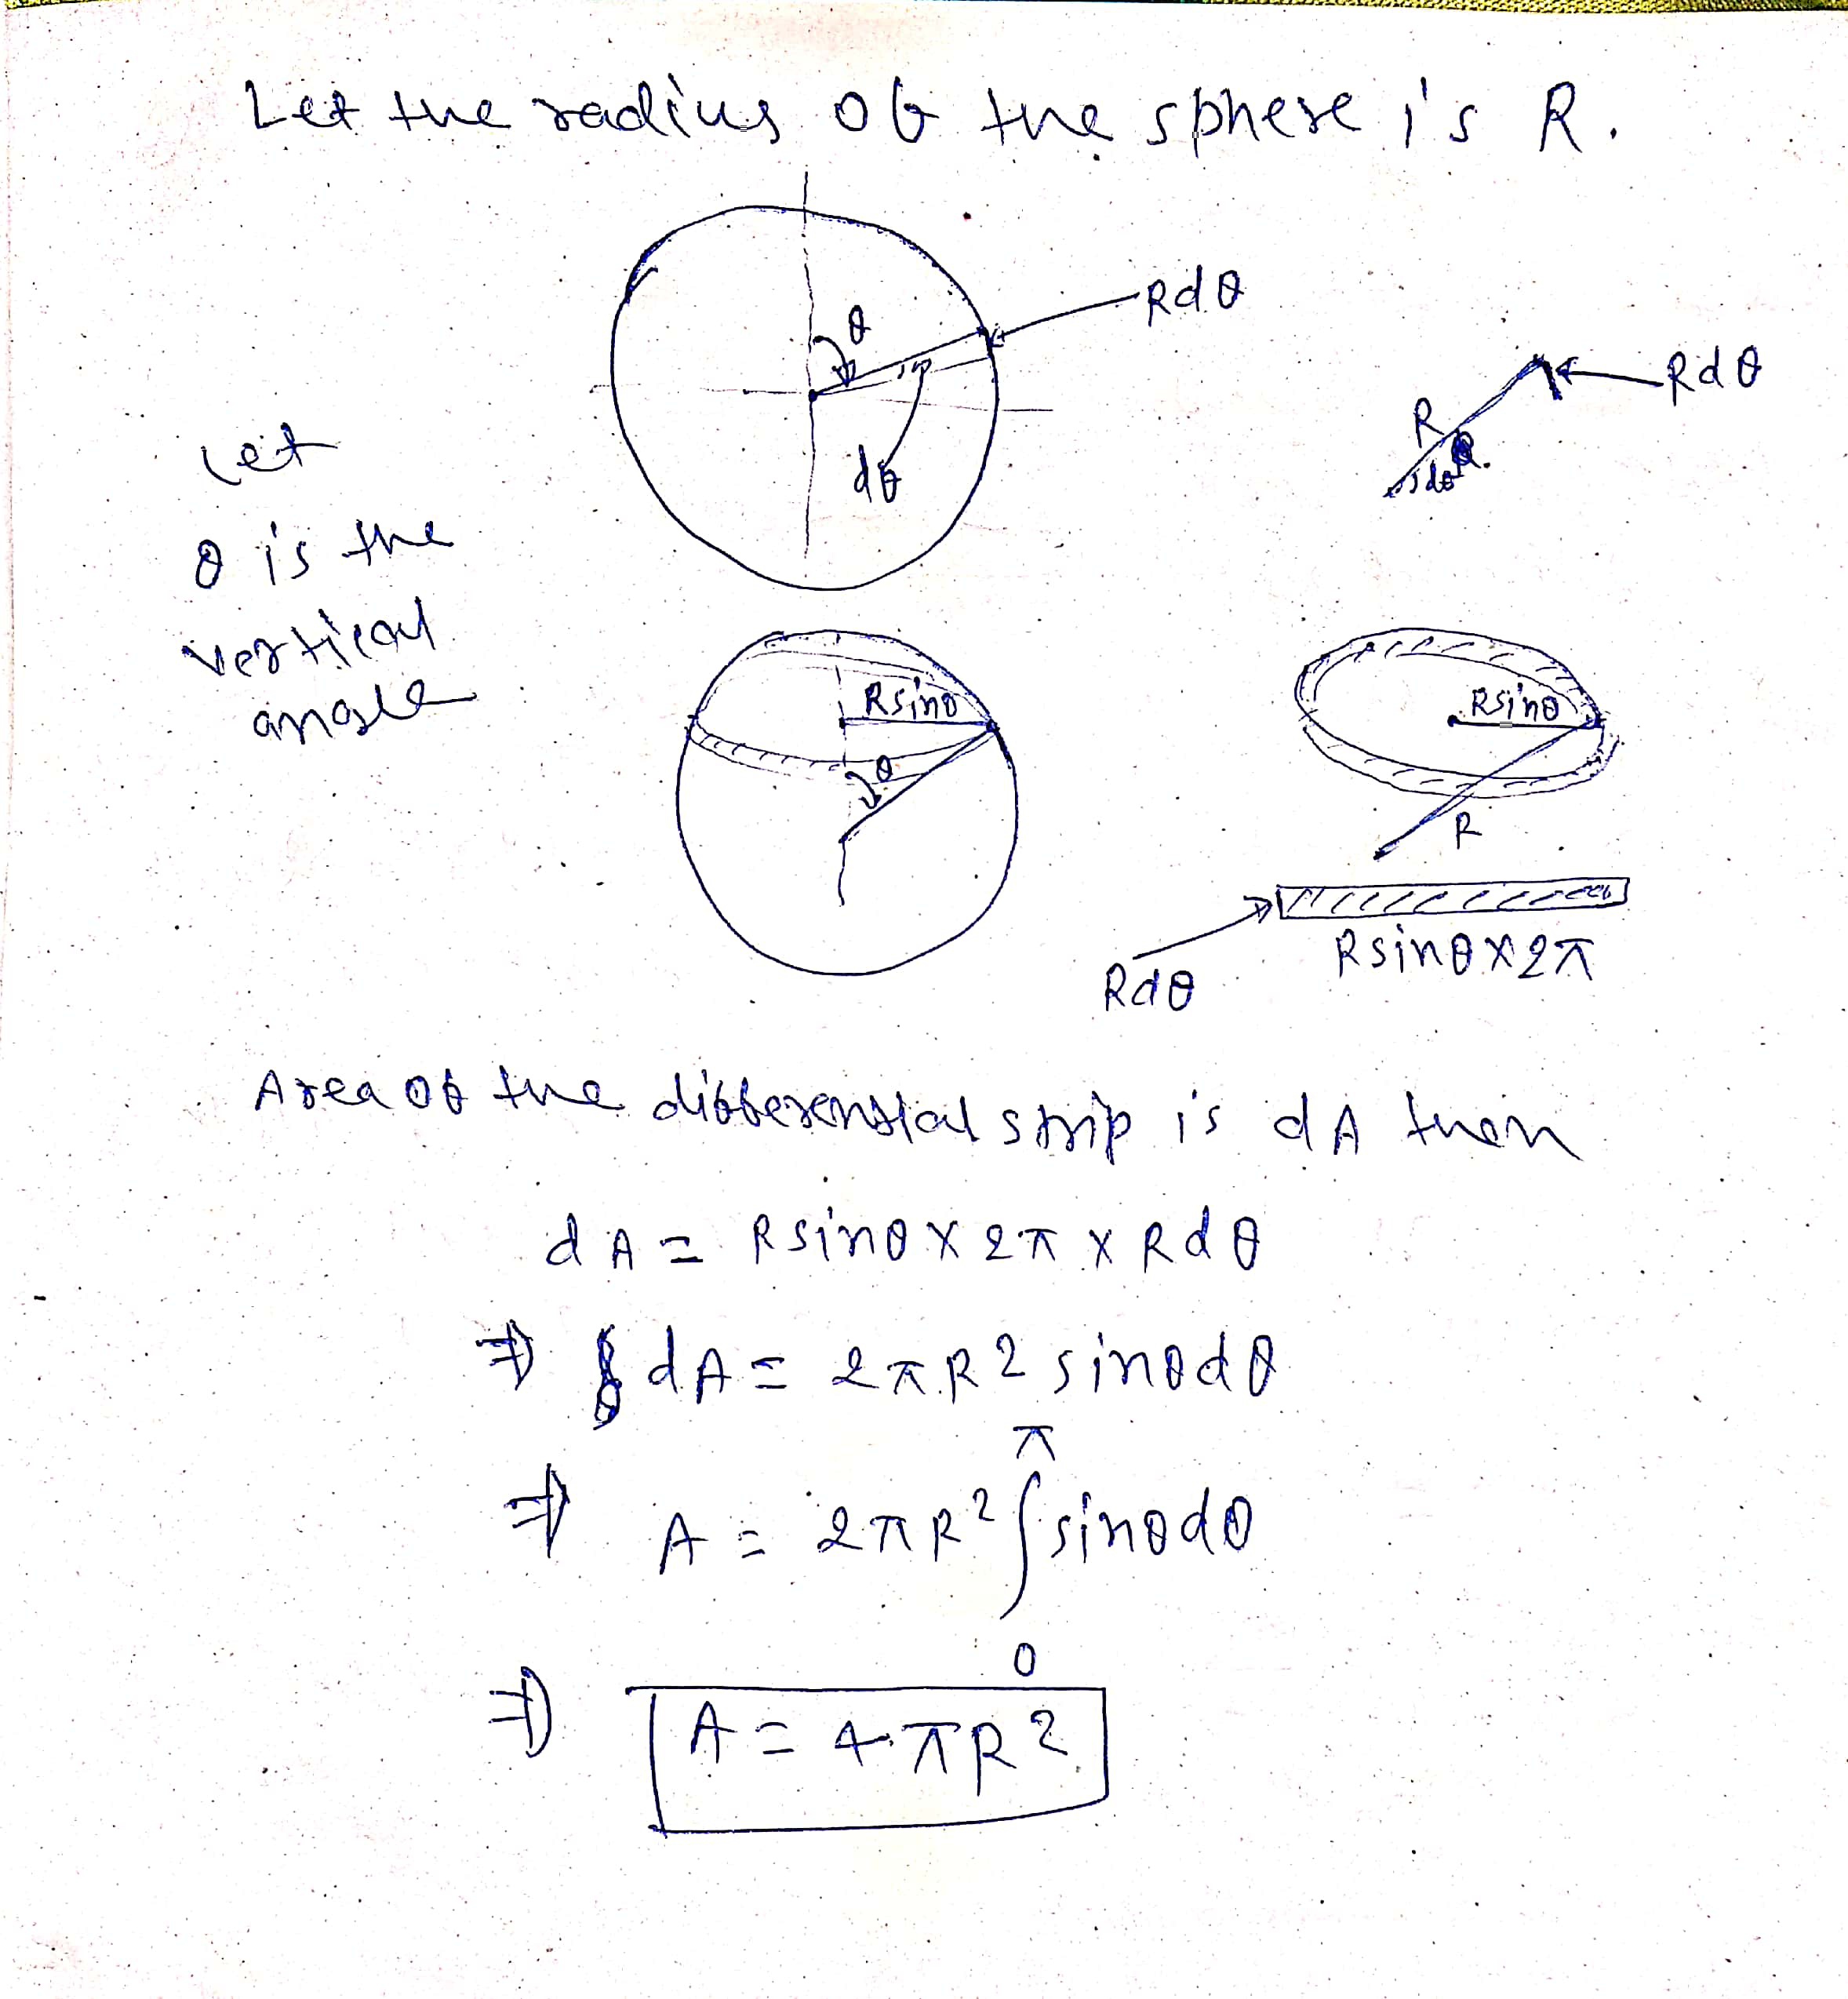 Let the radius of the sphere is R.
Rdθ
θ
dθ
Rdθ
R
dθ
Let
θ is the
vertical
angle
Rsinθ
θ
Rsinθ
R
Rdθ
Rsinθ×2π
Area of the differential strip is dA then
dA = Rsinθ × 2π × Rdθ
⇒ dA = 2πR² sinθdθ
⇒ A = 2πR² ∫₀^π sinθdθ
⇒ A = 4πR²